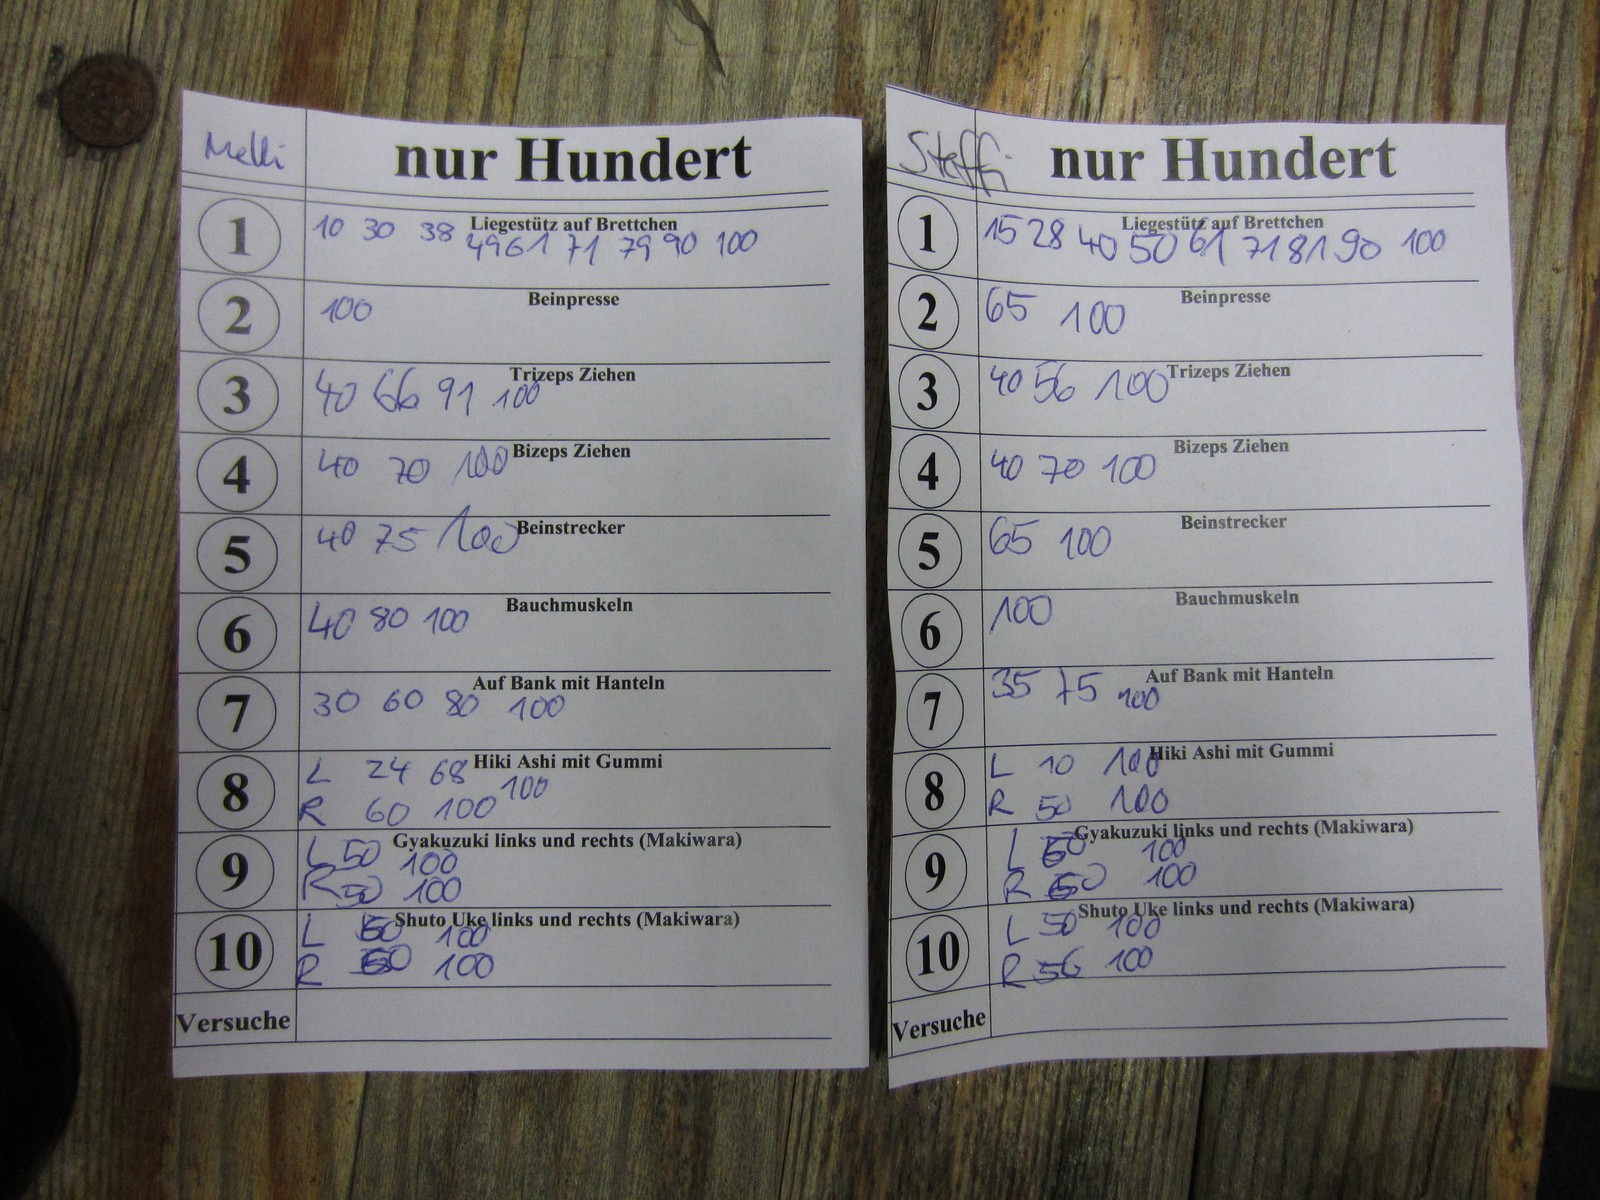 Melli nur Hundert
1 Liegestütz auf Brettchen
10 30 38 49 61 71 79 90 100
2 Beinpresse
100
3 Trizeps Ziehen
40 66 91 100
4 Bizeps Ziehen
40 70 100
5 Beinstrecker
40 75 100
6 Bauchmuskeln
40 80 100
7 Auf Bank mit Hanteln
30 60 80 100
8 Hiki Ashi mit Gummi
L 24 68 100
R 60 100
9 Gyakuzuki links und rechts (Makiwara)
L 50 100
R 50 100
10 Shuto Uke links und rechts (Makiwara)
L 60 100
R 60 100
Versuche
Steffi nur Hundert
1 Liegestütz auf Brettchen
15 28 40 50 61 71 81 90 100
2 Beinpresse
65 100
3 Trizeps Ziehen
40 56 100
4 Bizeps Ziehen
40 70 100
5 Beinstrecker
65 100
6 Bauchmuskeln
100
7 Auf Bank mit Hanteln
35 75 100
8 Hiki Ashi mit Gummi
L 10 100
R 50 100
9 Gyakuzuki links und rechts (Makiwara)
L 60 100
R 60 100
10 Shuto Uke links und rechts (Makiwara)
L 50 100
R 56 100
Versuche